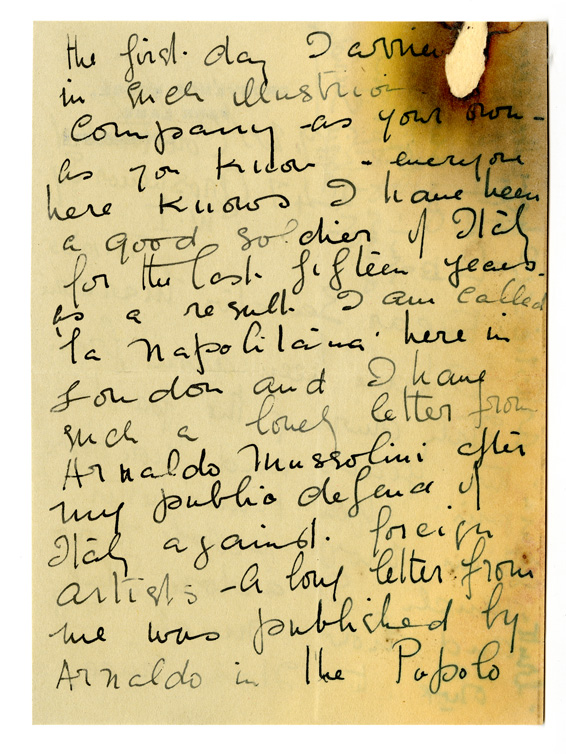 the first day I arrive
in such illustrion
company - as your own -
as you know - everyone
here knows I have been
a good soldier of Italy
for the last fifteen years.
as a result I am called
'la Napolitana' here in
London and I have
such a lovely letter from
Arnaldo Mussolini after
my public defence of
Italy against foreign
artists - A long letter from
me was published by
Arnaldo in the Popolo